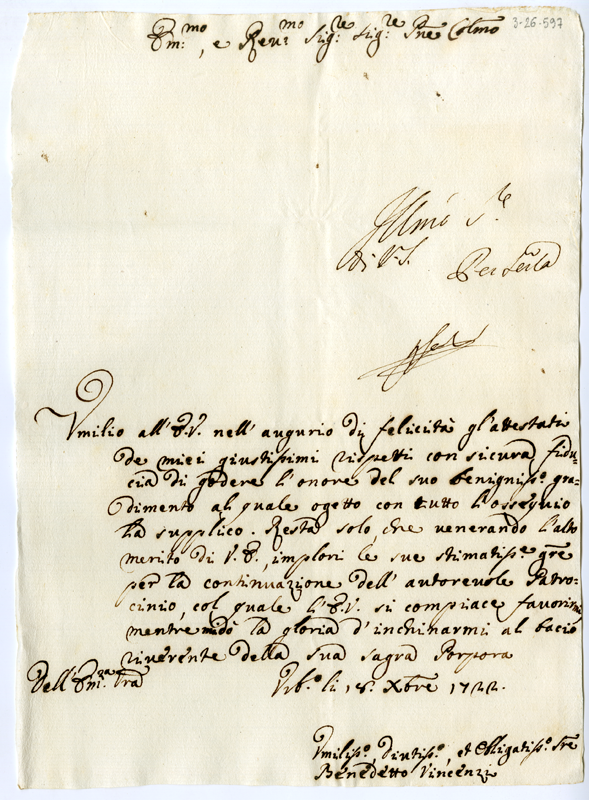 Em:mo, e Reu:mo Sig:re Sig:re Pne Colmo
3-26-597
Illmo S.re
di V.S.
Umilio all'E.V. nell'augurio di felicità gl'attestati
de miei giustissimi rispetti con sicura fidu-
cia di godere l'onore del suo benigniss.o gra-
dimento al quale ogetto con tutto l'ossequio
la supplico. Resta solo, che venerando l'alto
merito di V.E., implori le sue stimatiss.e gre
per la continuazione dell'autorevole Patro-
cinio, col quale l'E.V. si compiace favorirmi
mentre mi dò la gloria d'inchinarmi al bacio
riverente della sua sagra Porpora
Dell'Em.za Vra
Urb.o li 18. Xbre 1722.
Umiliss.o, Diuotiss.o, et Obligatiss.o Sre
Benedetto Vincenzi